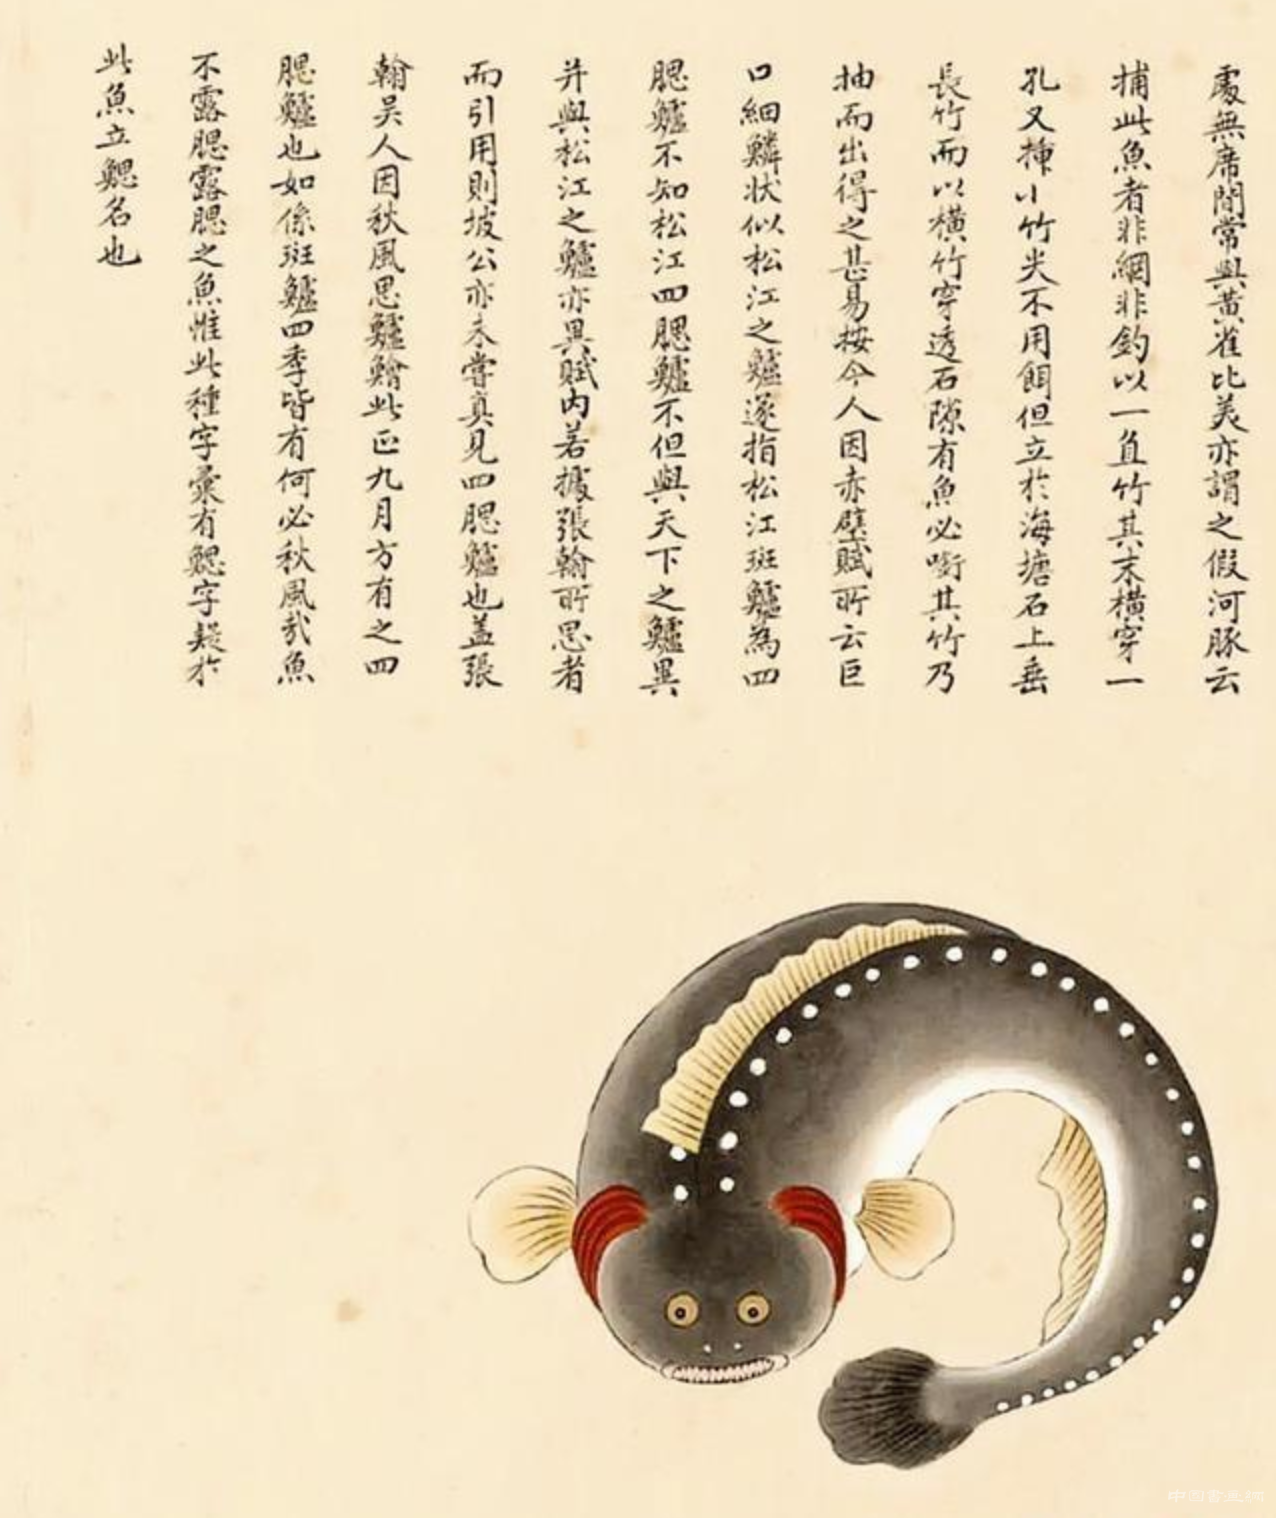 處無席間常與黄雀比美亦謂之假河豚云
捕此魚者非網非釣以一直竹其末横穿一
孔又挿小竹尖不用餌但立於海塘石上垂
長竹而以横竹穿透石隙有魚必啣其竹乃
抽而出得之甚易按今人因赤壁賦所云巨
口細鱗状似松江之鱸遂指松江斑鱸為四
腮鱸不知松江四腮鱸不但與天下之鱸異
并與松江之鱸亦異賦内若據張翰所思者
而引用則坡公亦未嘗真見四腮鱸也盖張
翰吴人因秋風思鱸鱠此正九月方有之四
腮鱸也如係斑鱸四季皆有何必秋風哉魚
不露腮露腮之魚惟此種字彙有鰓字疑於
此魚立鰓名也
中国書画網